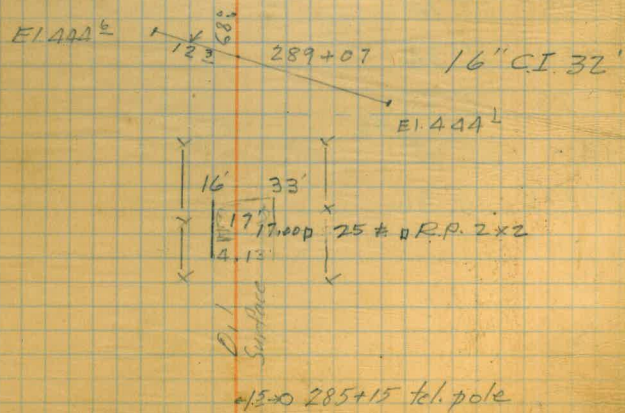 El. 444 6
68°
12 3
289+07
16" C.I. 32'
El. 444 1
16' 33'
17'
17.00
25 ± R.P. 2x2
4 13
Oil
Surface
15 285+15 tel. pole